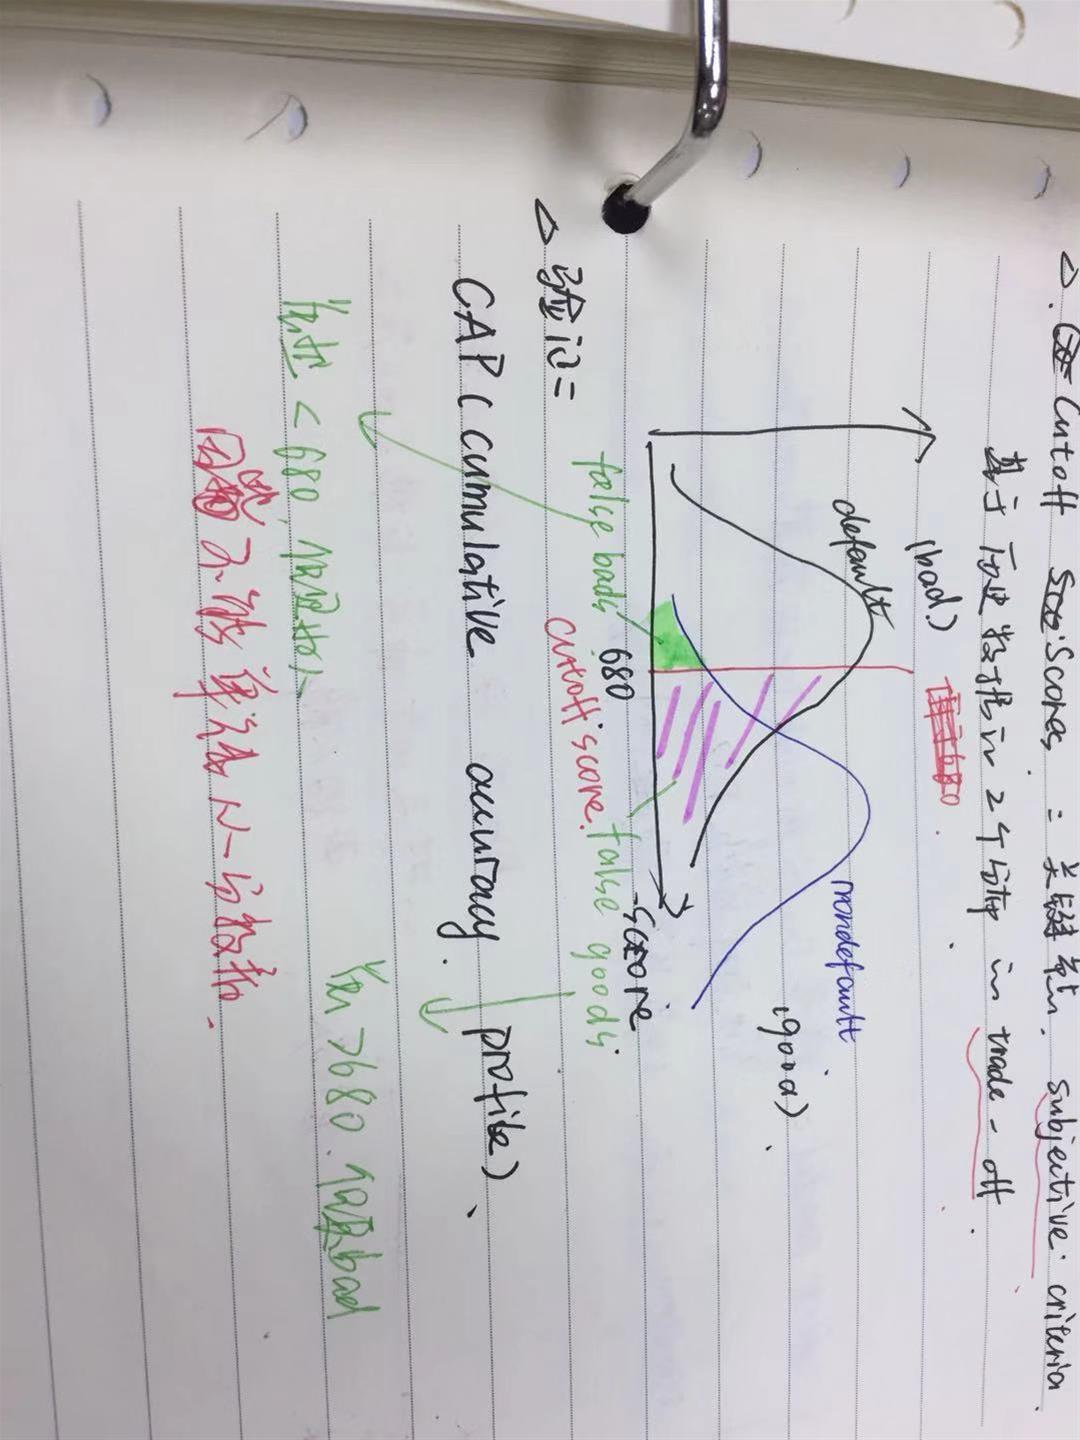 △. Cutoff Scores = 关键条件. subjective criteria.
基于历史数据的2个分布 的 trade-off.
(bad)
default
nondefault
(good)
680
score
false bads
cutoff score.
false goods.
△ 验证=
CAP (cumulative accuracy profile).
<680,
>680. 但是bad
不能单纯以一分数